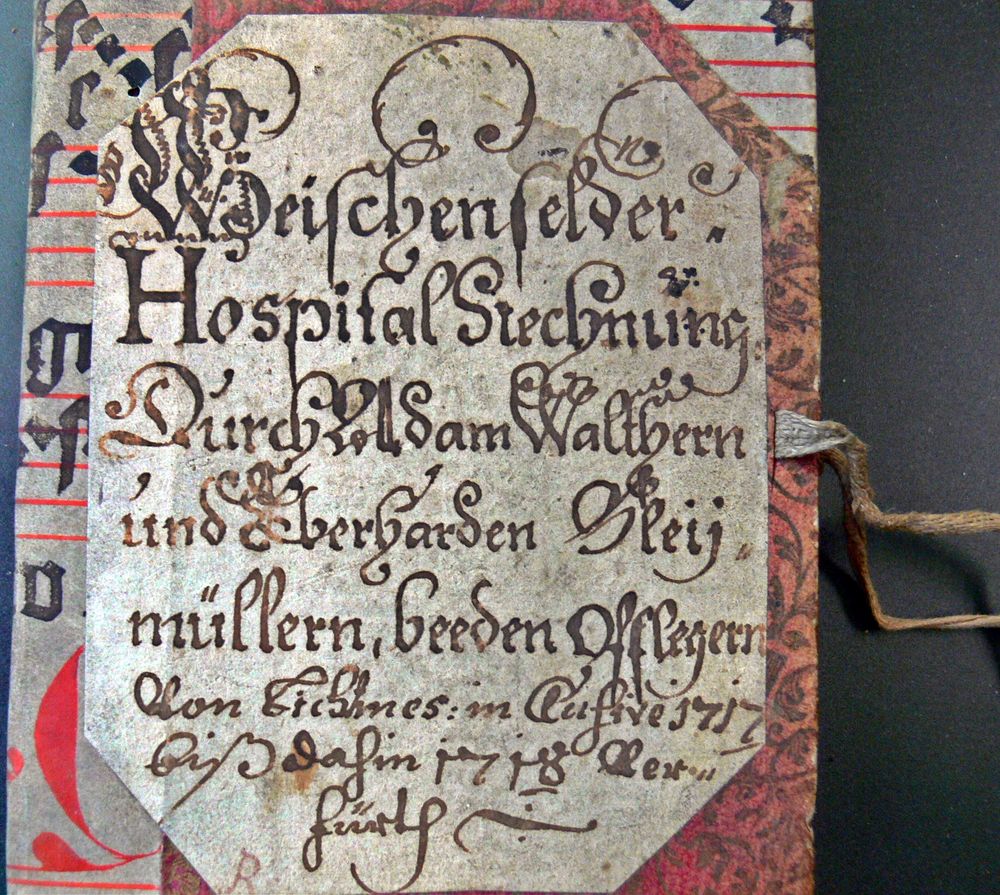 Weischenfelder
Hospital Rechnung
Durch Adam Walthern
und Eberharden Kleÿ-
müllern, beeden Pflegern
Von Lichtmes: in 1717
biß dahin 1718 Ver-
fürth
R